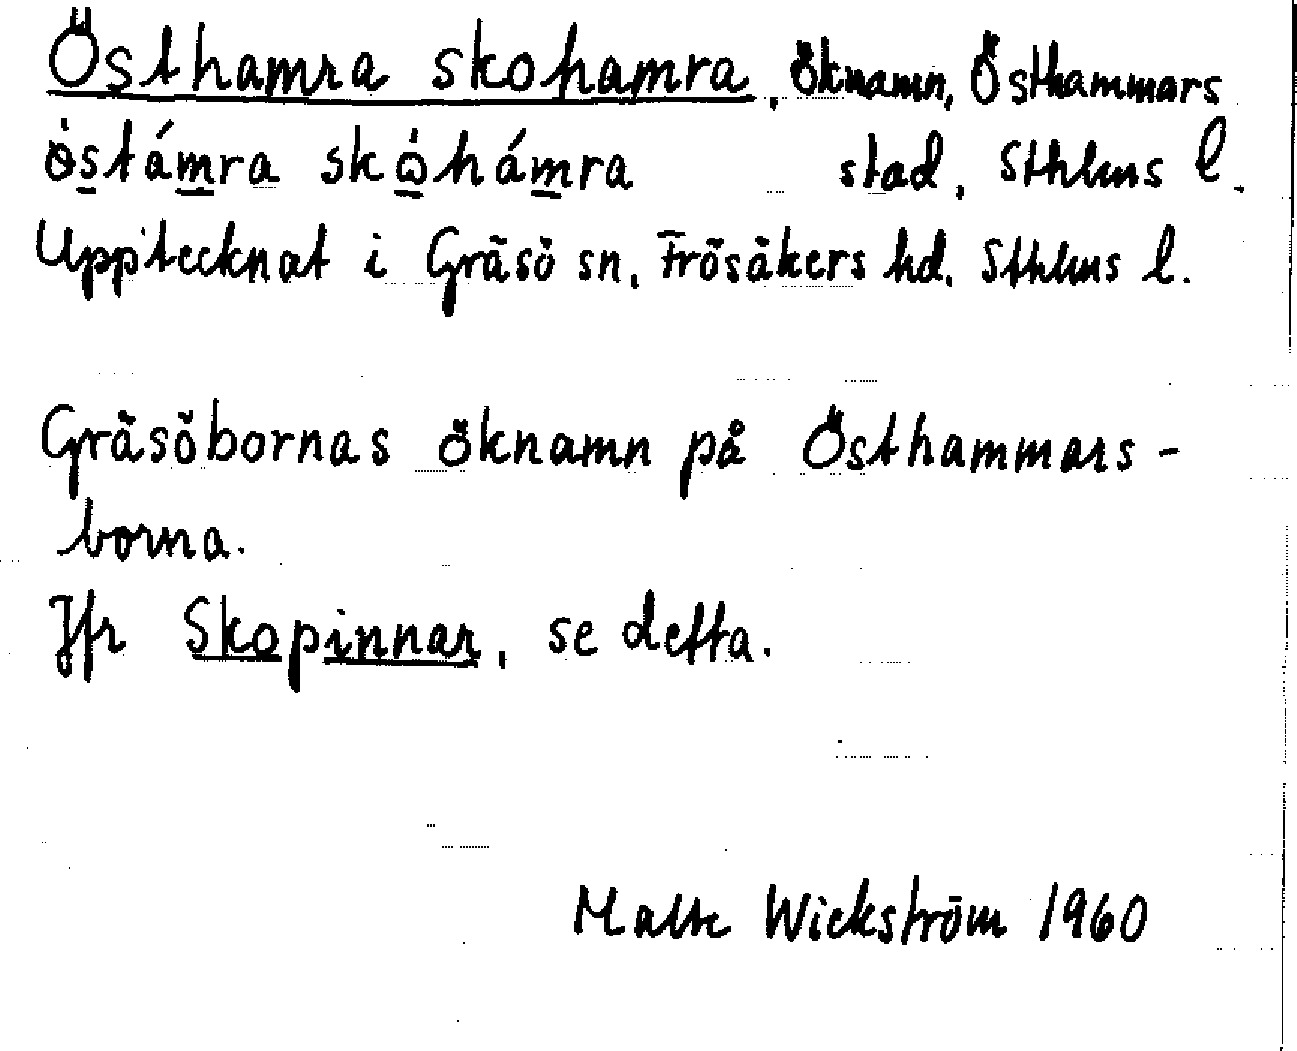 Östhamra skohamra, öknamn, Östhammars
östámra skóhámra stad, Sthlms l.
Upptecknat i Gräsö sn, Frösåkers hd. Sthlms l.
Gräsöbornas öknamn på Östhammars-
borna.
Jfr Skopinnar, se detta.
Malte Wickström 1960